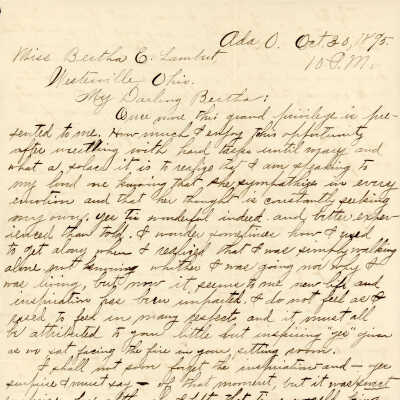 Ada, O. Oct. 20, 1895.
10 P.M.
Miss Bertha E. Lambert
Westerville Ohio.
My Darling Bertha:
Once more this grand privilege is pre-
sented to me. How much I enjoy this opportunity
after wrestling with hard steps until and
what a solace it is to realize that I am speaking to
my loved one knowing that she sympathizes in every
emotion and that her thought is constantly seeking
my own. Yes tis wonderful indeed and better exper-
ienced than told. I wonder sometimes how I used
to get along when I realized that I was simply walking
alone not knowing whether I was going nor why I
was living, but now it seems to me new life and
inspiration has been imparted. I do not feel as I
used to feel in many respects and it must all
be attributed to your little but inspiring "yes" given
as we sat facing the fire in your sitting room.
I shall not soon forget the inspiration and — yes
surprise I must say — of that moment, but it was sweet